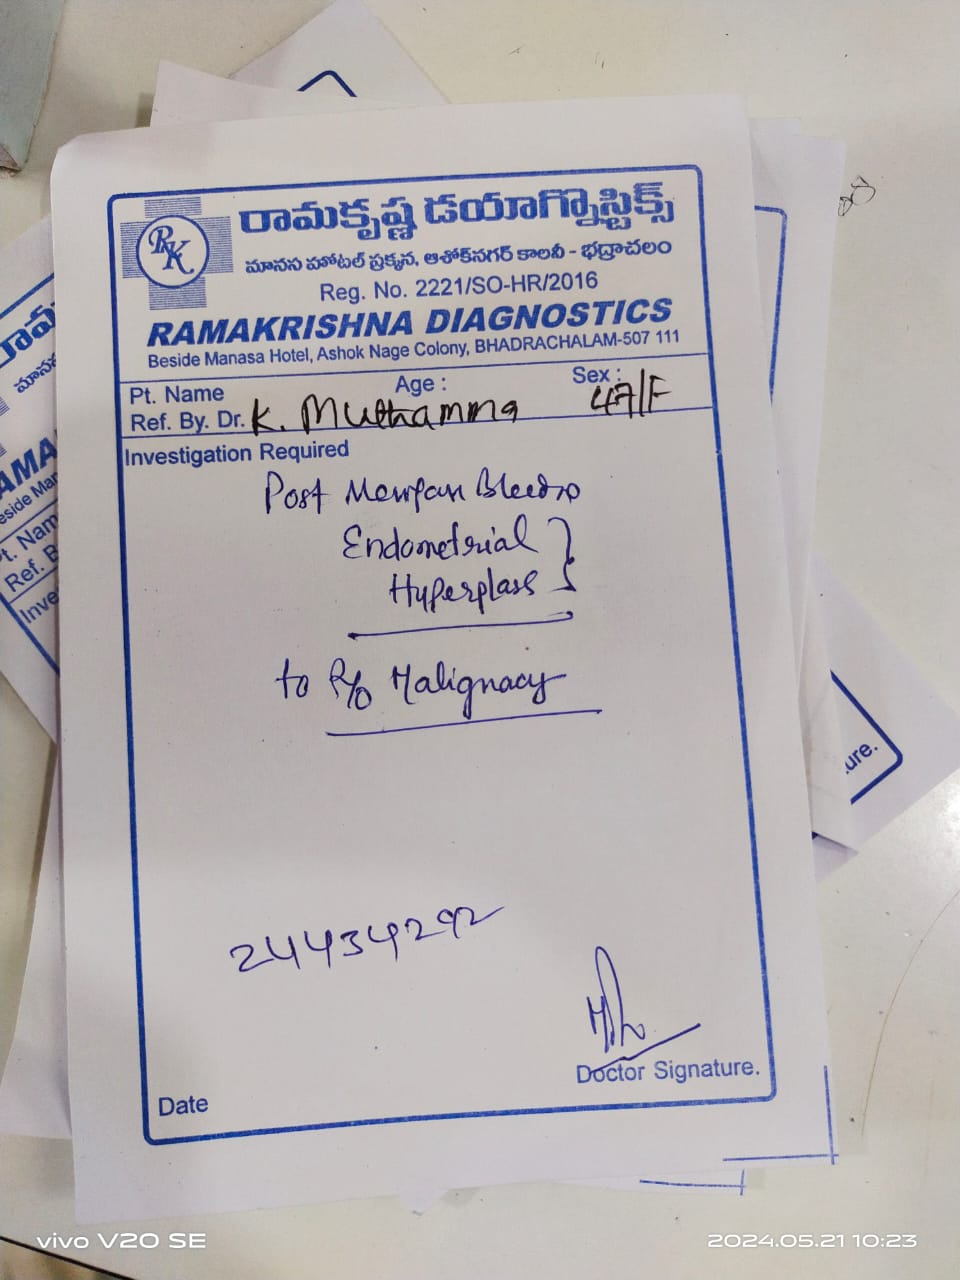 RK
రామకృష్ణ డయాగ్నొస్టిక్స్
మానస హోటల్ ప్రక్కన, ఆశోక్‌నగర్ కాలనీ - భద్రాచలం
Reg. No. 2221/SO-HR/2016
RAMAKRISHNA DIAGNOSTICS
Beside Manasa Hotel, Ashok Nage Colony, BHADRACHALAM-507 111
Pt. Name Age : Sex :
Ref. By. Dr. K. Muthamma 47/F
Investigation Required
Post
Endometrial
Hyperplasi
to R/o Malignacy
24434292
Doctor Signature.
Date
ure.
vivo V20 SE
2024.05.21 10:23